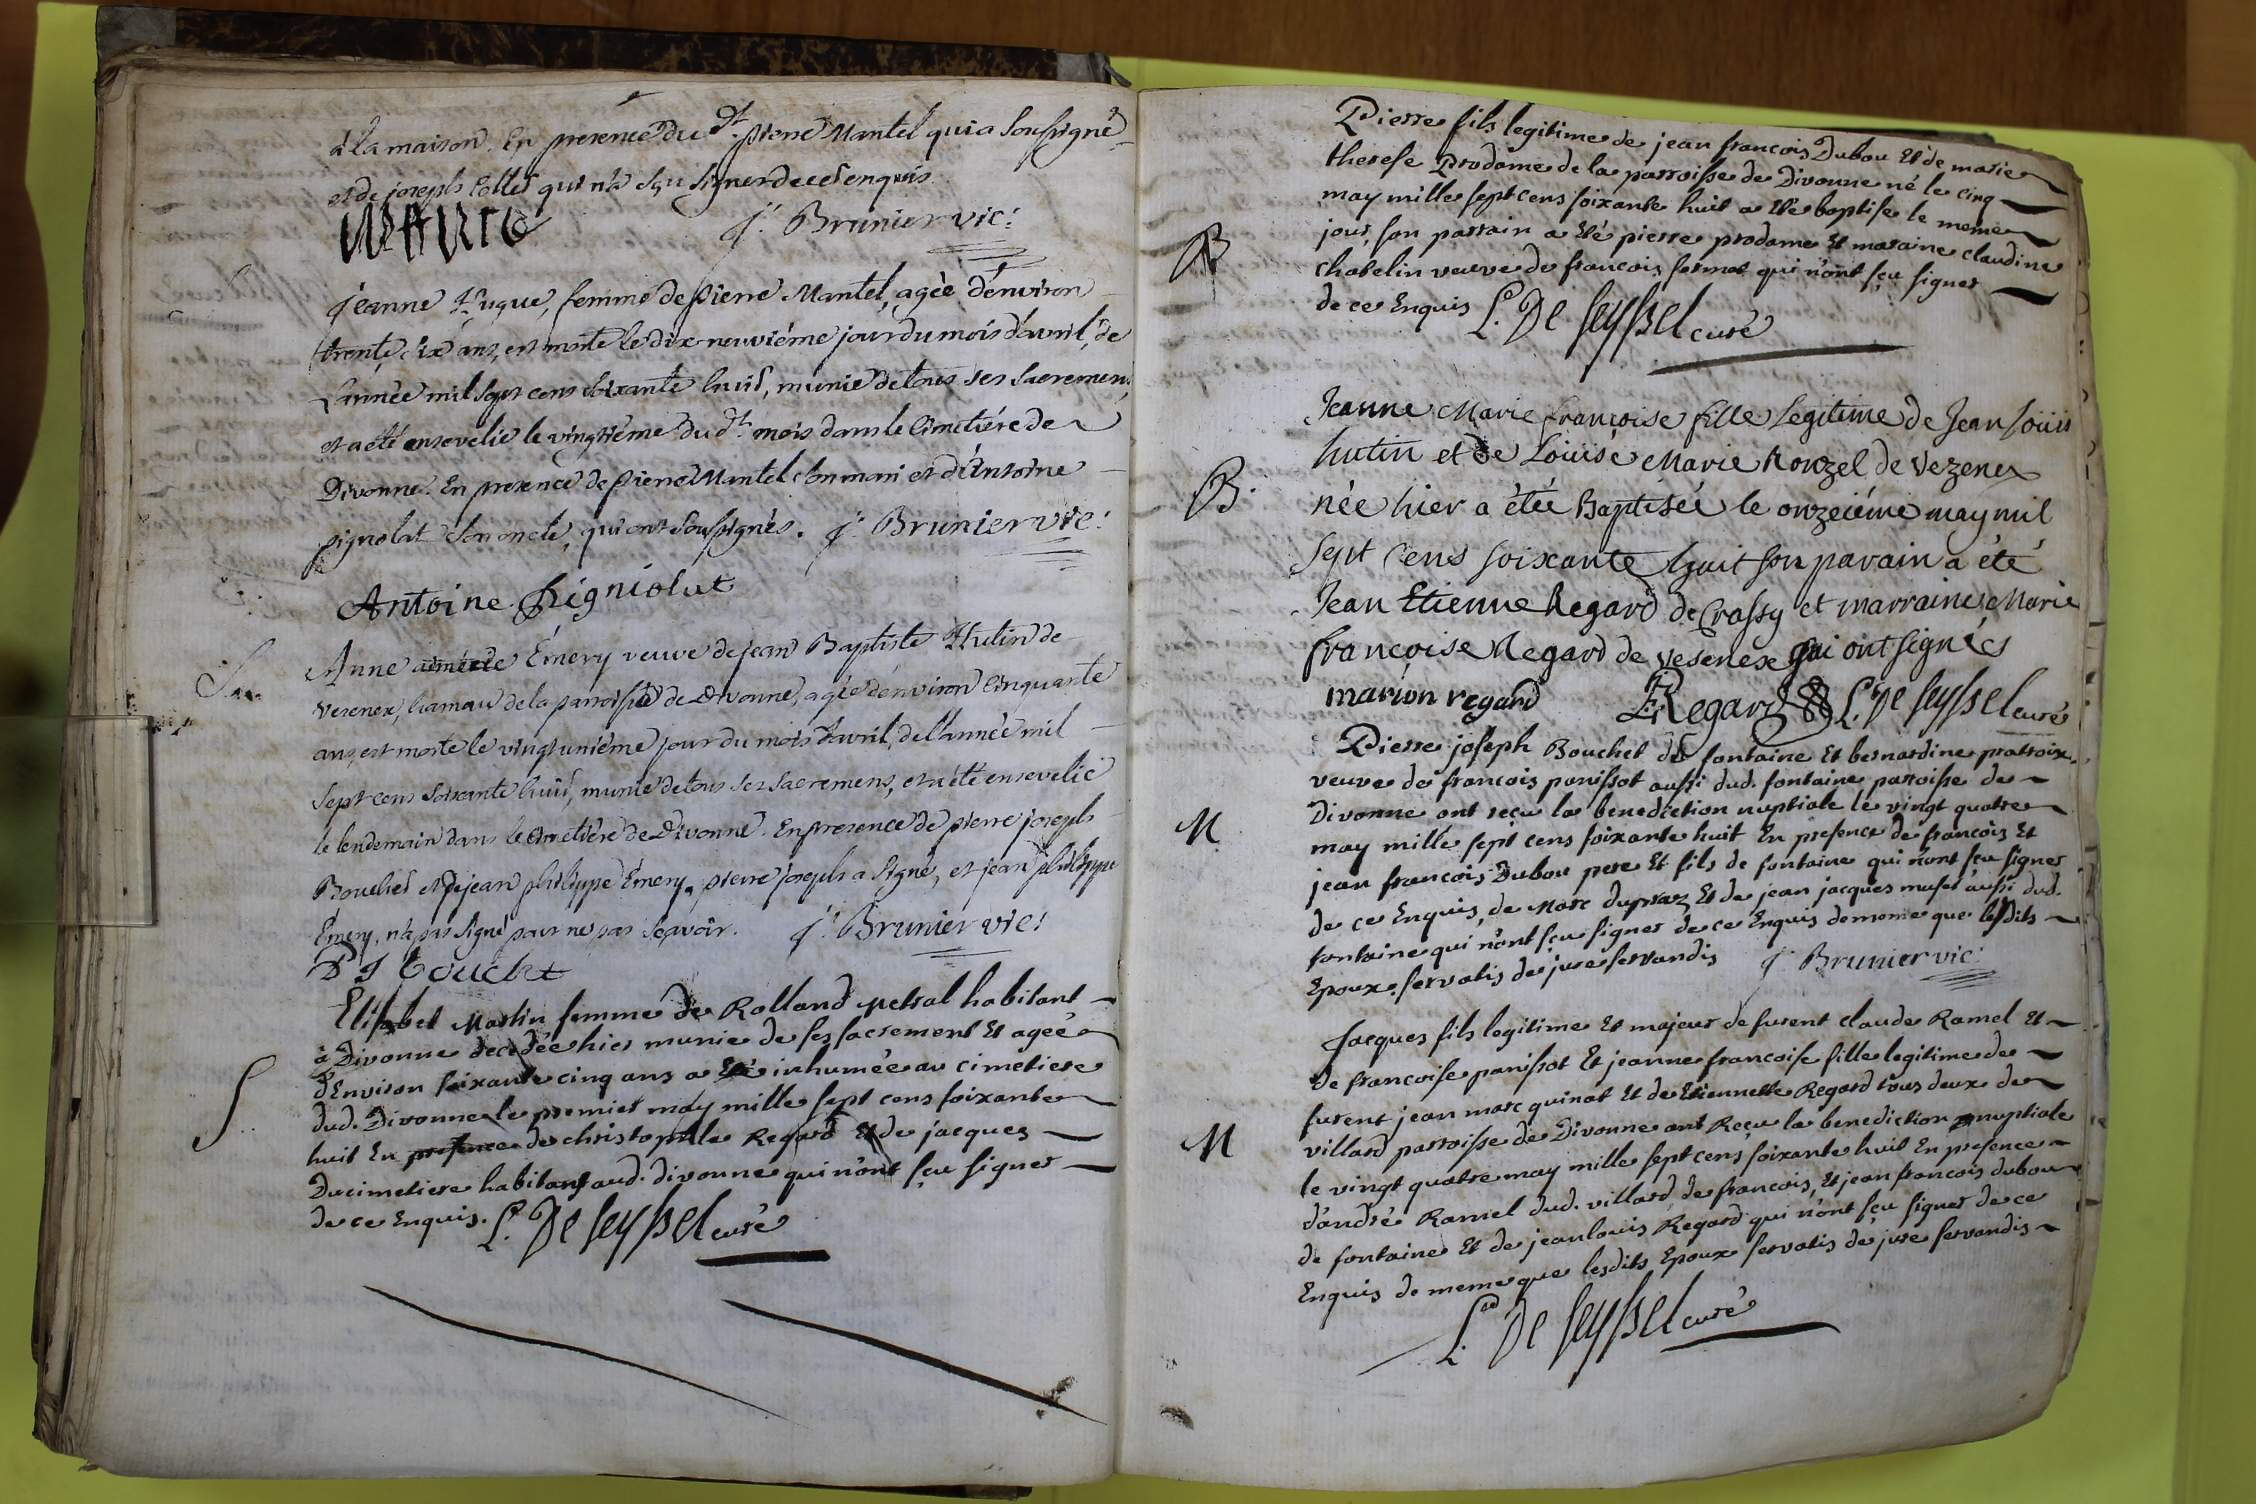 à la maison. En presence du dt. pierre Mantel qui a soussigné
et de joseph Collet qui n'a sçu signer de ce enquis.
j: Brunier vic:
Jeanne Hugue, femme de pierre Mantel, agée d'environ
trente six ans, est morte le dix neuviéme jour du mois d'avril, de
L'année mil sept cens soixante huit, munie de tous ses sacremens,
et a été ensevelie le vingtiéme du dt. mois dans le Cimetiére de
Divonne. En presence de pierre Mantel son mari et d'Antoine
pignolat son oncle, qui ont soussignés. j: Brunier vic:
Antoine Pigniolat
Anne Émery veuve de jean Baptiste Hutin de
Vesenex, hamau de la parroisse de Divonne, agée d'environ Cinquante
ans, est morte le vingt uniéme jour du mois d'avril, de l'année mil
sept cens soixante huit, munie de tous ses sacremens, et a été ensevelie
le lendemain dans le Cimetiére de Divonne. En presence de pierre joseph
Bouchet et de jean philippe Émery. pierre joseph a signé, et jean philippe
Émery, n'a pas signé pour ne pas sçavoir. j: Brunier vic:
P J Bouchet
S
Elisabet Martin femme de Rolland Metral habitant
à Divonne decedée hier munie de ses sacrement Et ageé
d'Environ soixante cinq ans a Eté inhumée au cimétiere
dud. Divonne le premier may mille sept cens soixante
huit En presence de christophle Regard Et de jacques
Ducimetiere habitans aud. divonne qui n'ont sçu signer
de ce Enquis. L. De Seyssel curé
B
Pierre fils legitime de jean francois Dubou Et de marie
therese Prodame de la parroisse de Divonne né le cinq
may mille sept cens soixante huit a Eté baptise le meme
jour, son parrain a Eté pierre prodame Et maraine claudine
chatelin veuve de francois qui n'ont sçu signer
de ce Enquis L. De Seyssel curé
B.
Jeanne Marie françoise fille Legitime de Jean Loüis
hutin et de Loüise Marie Rouzel de Vezenex
née hier a étée Baptisée le onzeiéme may mil
sept Cens soixante huit son parain a été
Jean Etienne Regard de Crassy et marraine Marie
françoise Regard de Vesenex qui ont signés
marion regard Regard L. De Seyssel curé
M
Pierre joseph Bouchet de fontaine Et bernardine
veuve de francois panissot aussi dud. fontaine parroisse de
Divonne ont reçu la benediction nuptiale le vingt quatre
may mille sept cens soixante huit En presence de francois Et
jean francois Dubou pere Et fils de fontaine qui n'ont sçu signer
de ce Enquis, de Marc dupraz Et de jean jacques aussi dud.
fontaine qui n'ont sçu signer de ce Enquis de meme que lesdits
Epoux. servatis de jure servandis j: Brunier vic:
M
Jacques fils legitime Et majeur de furent claude Ramel Et
de francoise panissot Et jeanne francoise fille legitime de
furent jean marc quinat Et de Etiennette Regard tous deux de
villard parroisse de Divonne ont Reçu la benediction nuptiale
le vingt quatre may mille sept cens soixante huit En presence
d'andré Ramel dud. villard, de francois, Et jean francois dubou
de fontaine Et de jean louis Regard qui n'ont sçu signer de ce
Enquis de meme que lesdits Epoux servatis de jure servandis
L. De Seyssel curé